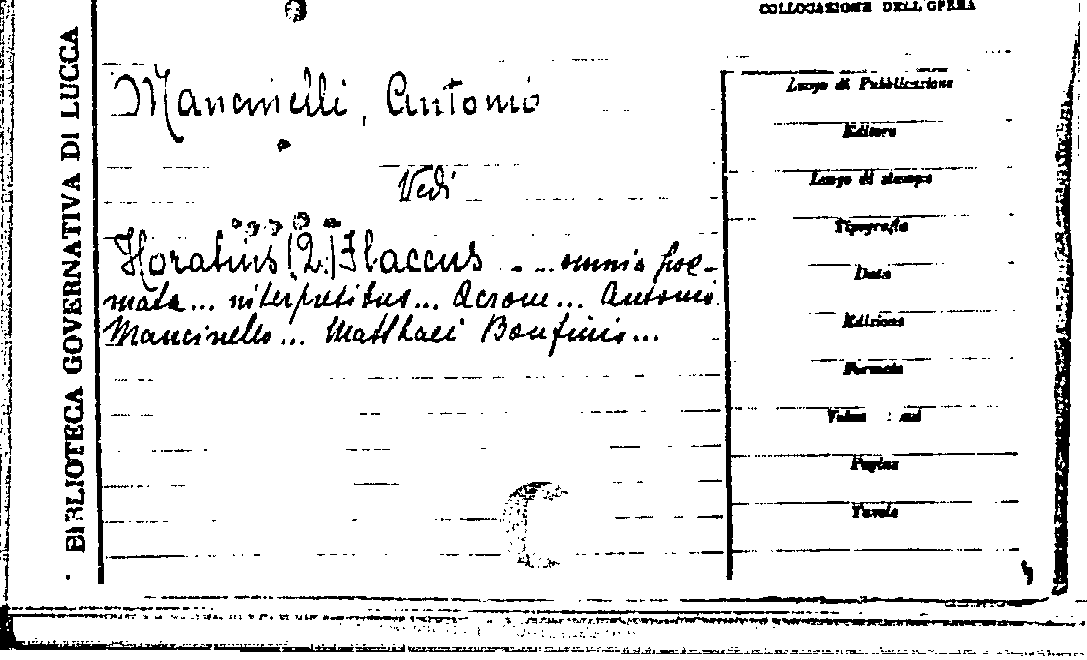 COLLOCAZIONE DELL'OPERA
BIBLIOTECA GOVERNATIVA DI LUCCA
Mancinelli, Antonio
Vedi
Horatius (2.) Flaccus .... omnia poe-
mata... interpretibus... Acrone... Antonio
Mancinello... Matthaei Bonfinis...
Luogo di Pubblicazione
Editore
Luogo di stampa
Tipografia
Data
Edizione
Formato
Pagine
Tavole